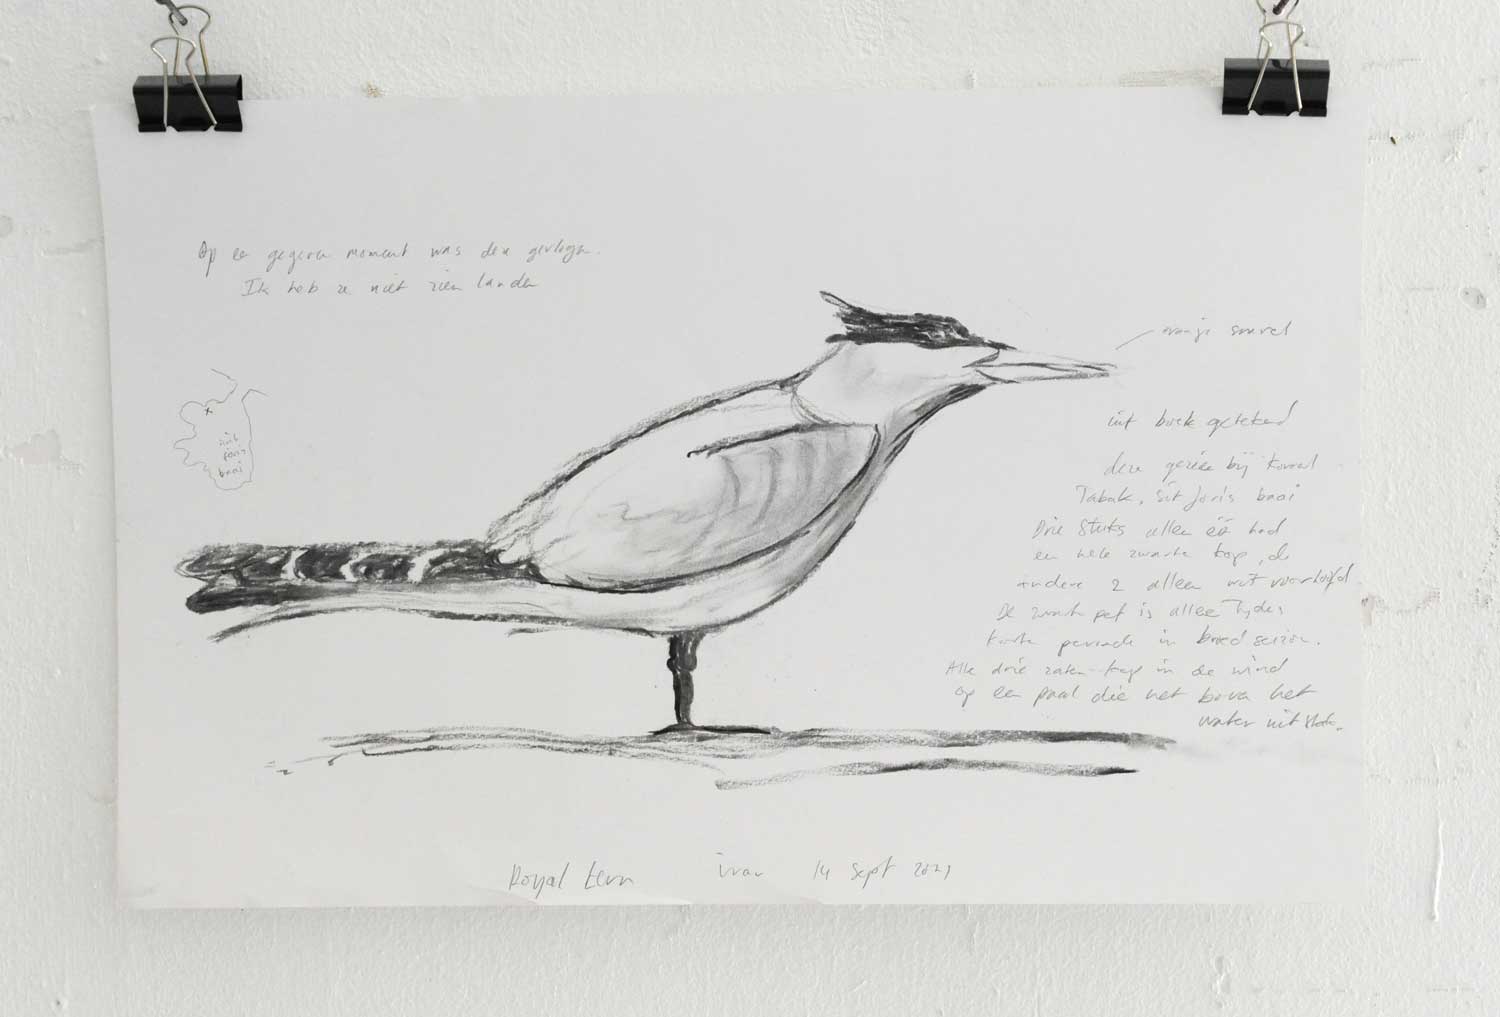 Op een gegeven moment was deze gevlogen.
Ik heb ze niet zien landen
oranje snavel
uit boek getekend
deze gezien bij Koraal
Tabak, Sint Joris baai
Drie Stuks alleen één had
een hele zwarte kop, de
andere 2 alleen wit voorhoofd
De zwarte pet is alleen Tijdens
korte periode in broed seizoen.
Alle drie zaten kop in de wind
op een paal die net boven het
water uit stak.
Sint
joris
baai
Royal tern ivan 14 sept 2021